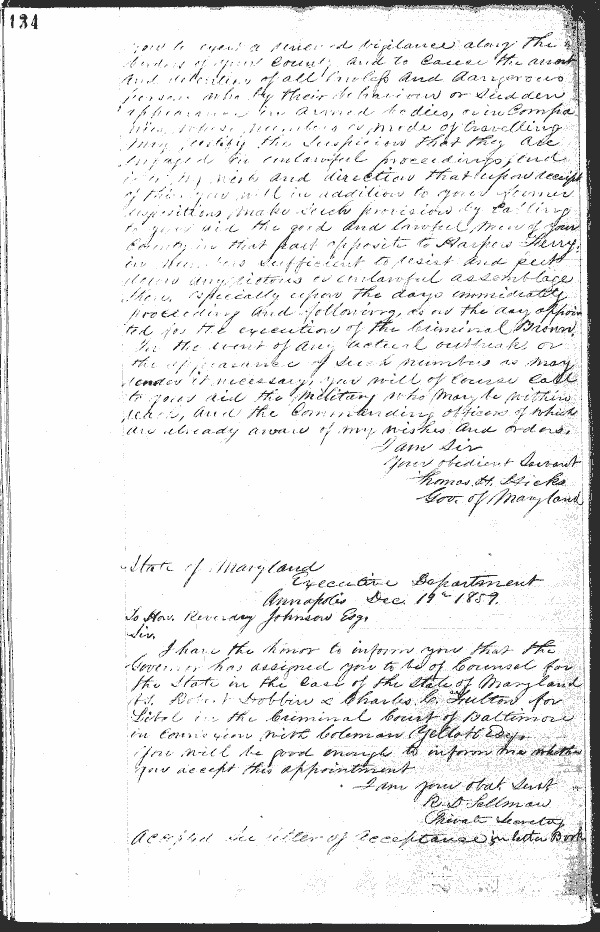 134
you to exert a renewed vigilance along the
borders of your County and to cause the arrest
and detention of all lawless and dangerous
persons who by their behaviour or sudden
appearance in armed bodies, or in Compa
nies, whose numbers or mode of travelling
may certify the suspicion that they are
engaged in unlawful proceedings, and
it is my wish and direction that upon receipt
of this you will in addition to your former
dispositions, make such provision by Calling
to your aid the good and lawful men of your
County in that part opposite to Harpers Ferry,
in numbers sufficient to resist and put
down any riotous or unlawful assemblage
there, especially upon the days immediately
proceeding and following, as on the day appoin
ted for the execution of the Criminal Brown.
In the event of any actual outbreak or
the appearance of such numbers as may
render it necessary, you will of course Call
to your aid the Military who may be within
reach, and the Commanding officers of which
are already aware of my wishes and orders.
I am Sir
Your obedient Servant
Thomas H. Hicks
Gov. of Maryland
State of Maryland
Executive Department
Annapolis Dec. 19th 1859.
To Hon. Reverdy Johnson Esq.
Sir,
I have the honor to inform you that the
Governor has assigned you to be of Counsel for
the State in the case of the State of Maryland
vs. Robert Dobbin & Charles C. Fulton for
Libel in the Criminal Court of Baltimore
in connexion with Coleman Yellott Esq.
You will be good enough to inform me whether
you accept this appointment
I am your obdt. Servt
R. D. Sellman
Private Secretary
Accepted See letter of acceptance in letter Book